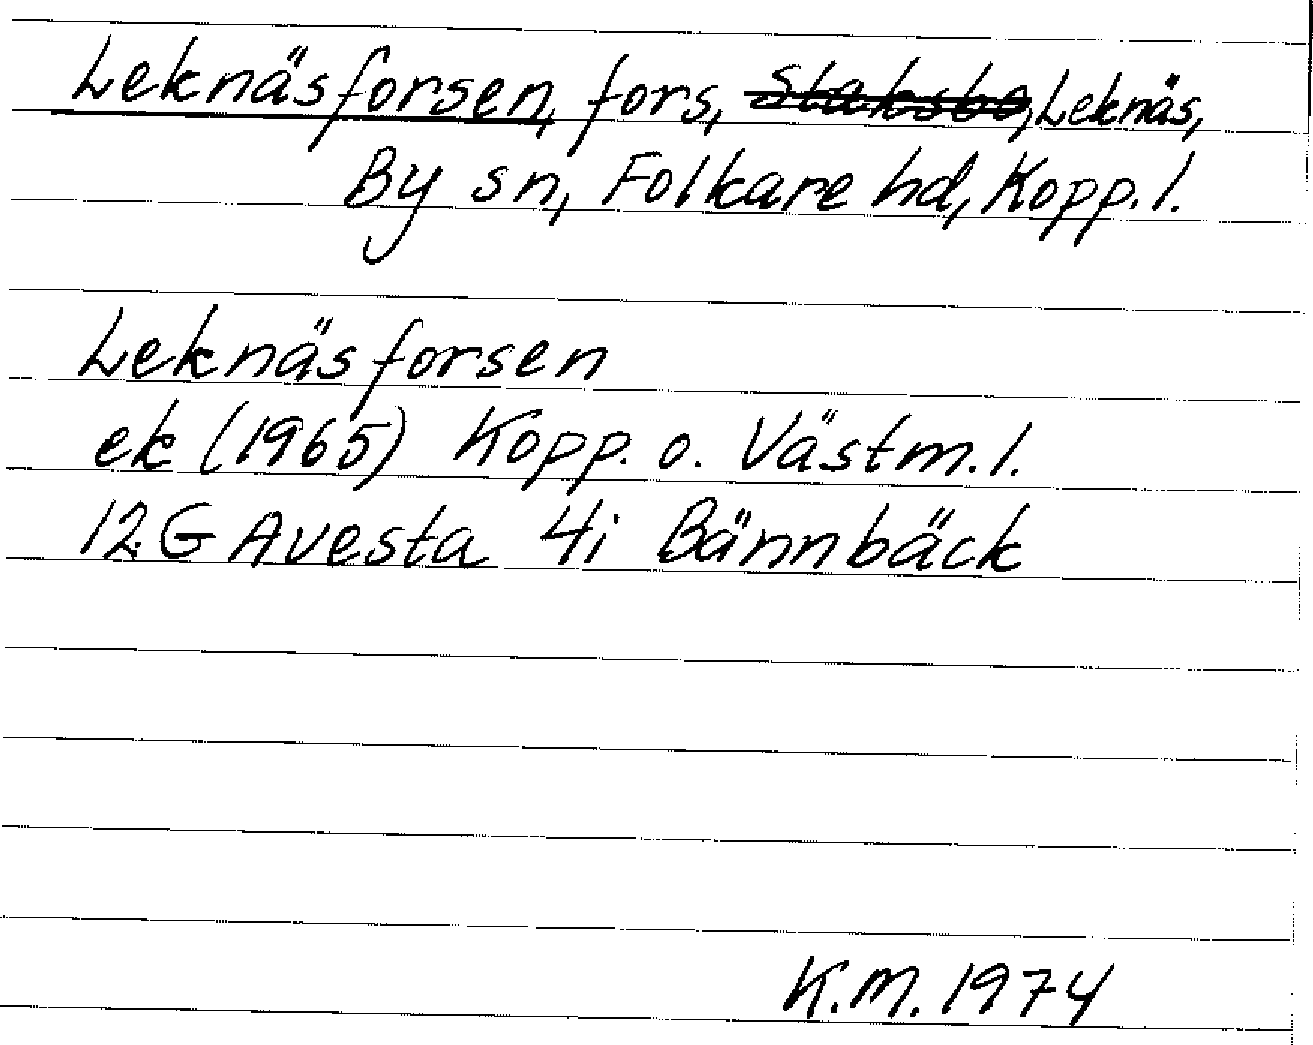 Leknäsforsen, fors, Staksbo, Leknäs,
By sn, Folkare hd, Kopp. l.
Leknäsforsen
ek (1965) Kopp. o. Västm. l.
12 G Avesta 4i Bännbäck
K.M. 1974